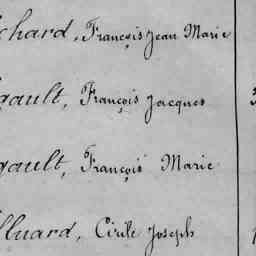 chard, François Jean Marie
gault, François Jacques
gault, François Marie
lluard, Cirile Joseph